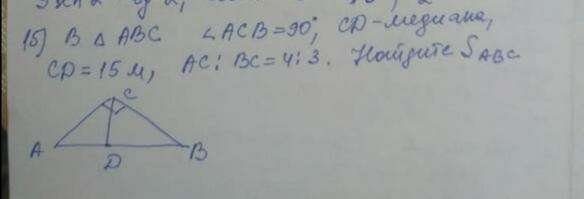 15) В △ ABC ∠ACB=90°, CD-медиана,
CD=15 м, AC:BC=4:3. Найдите S ABC
C
A
D
B